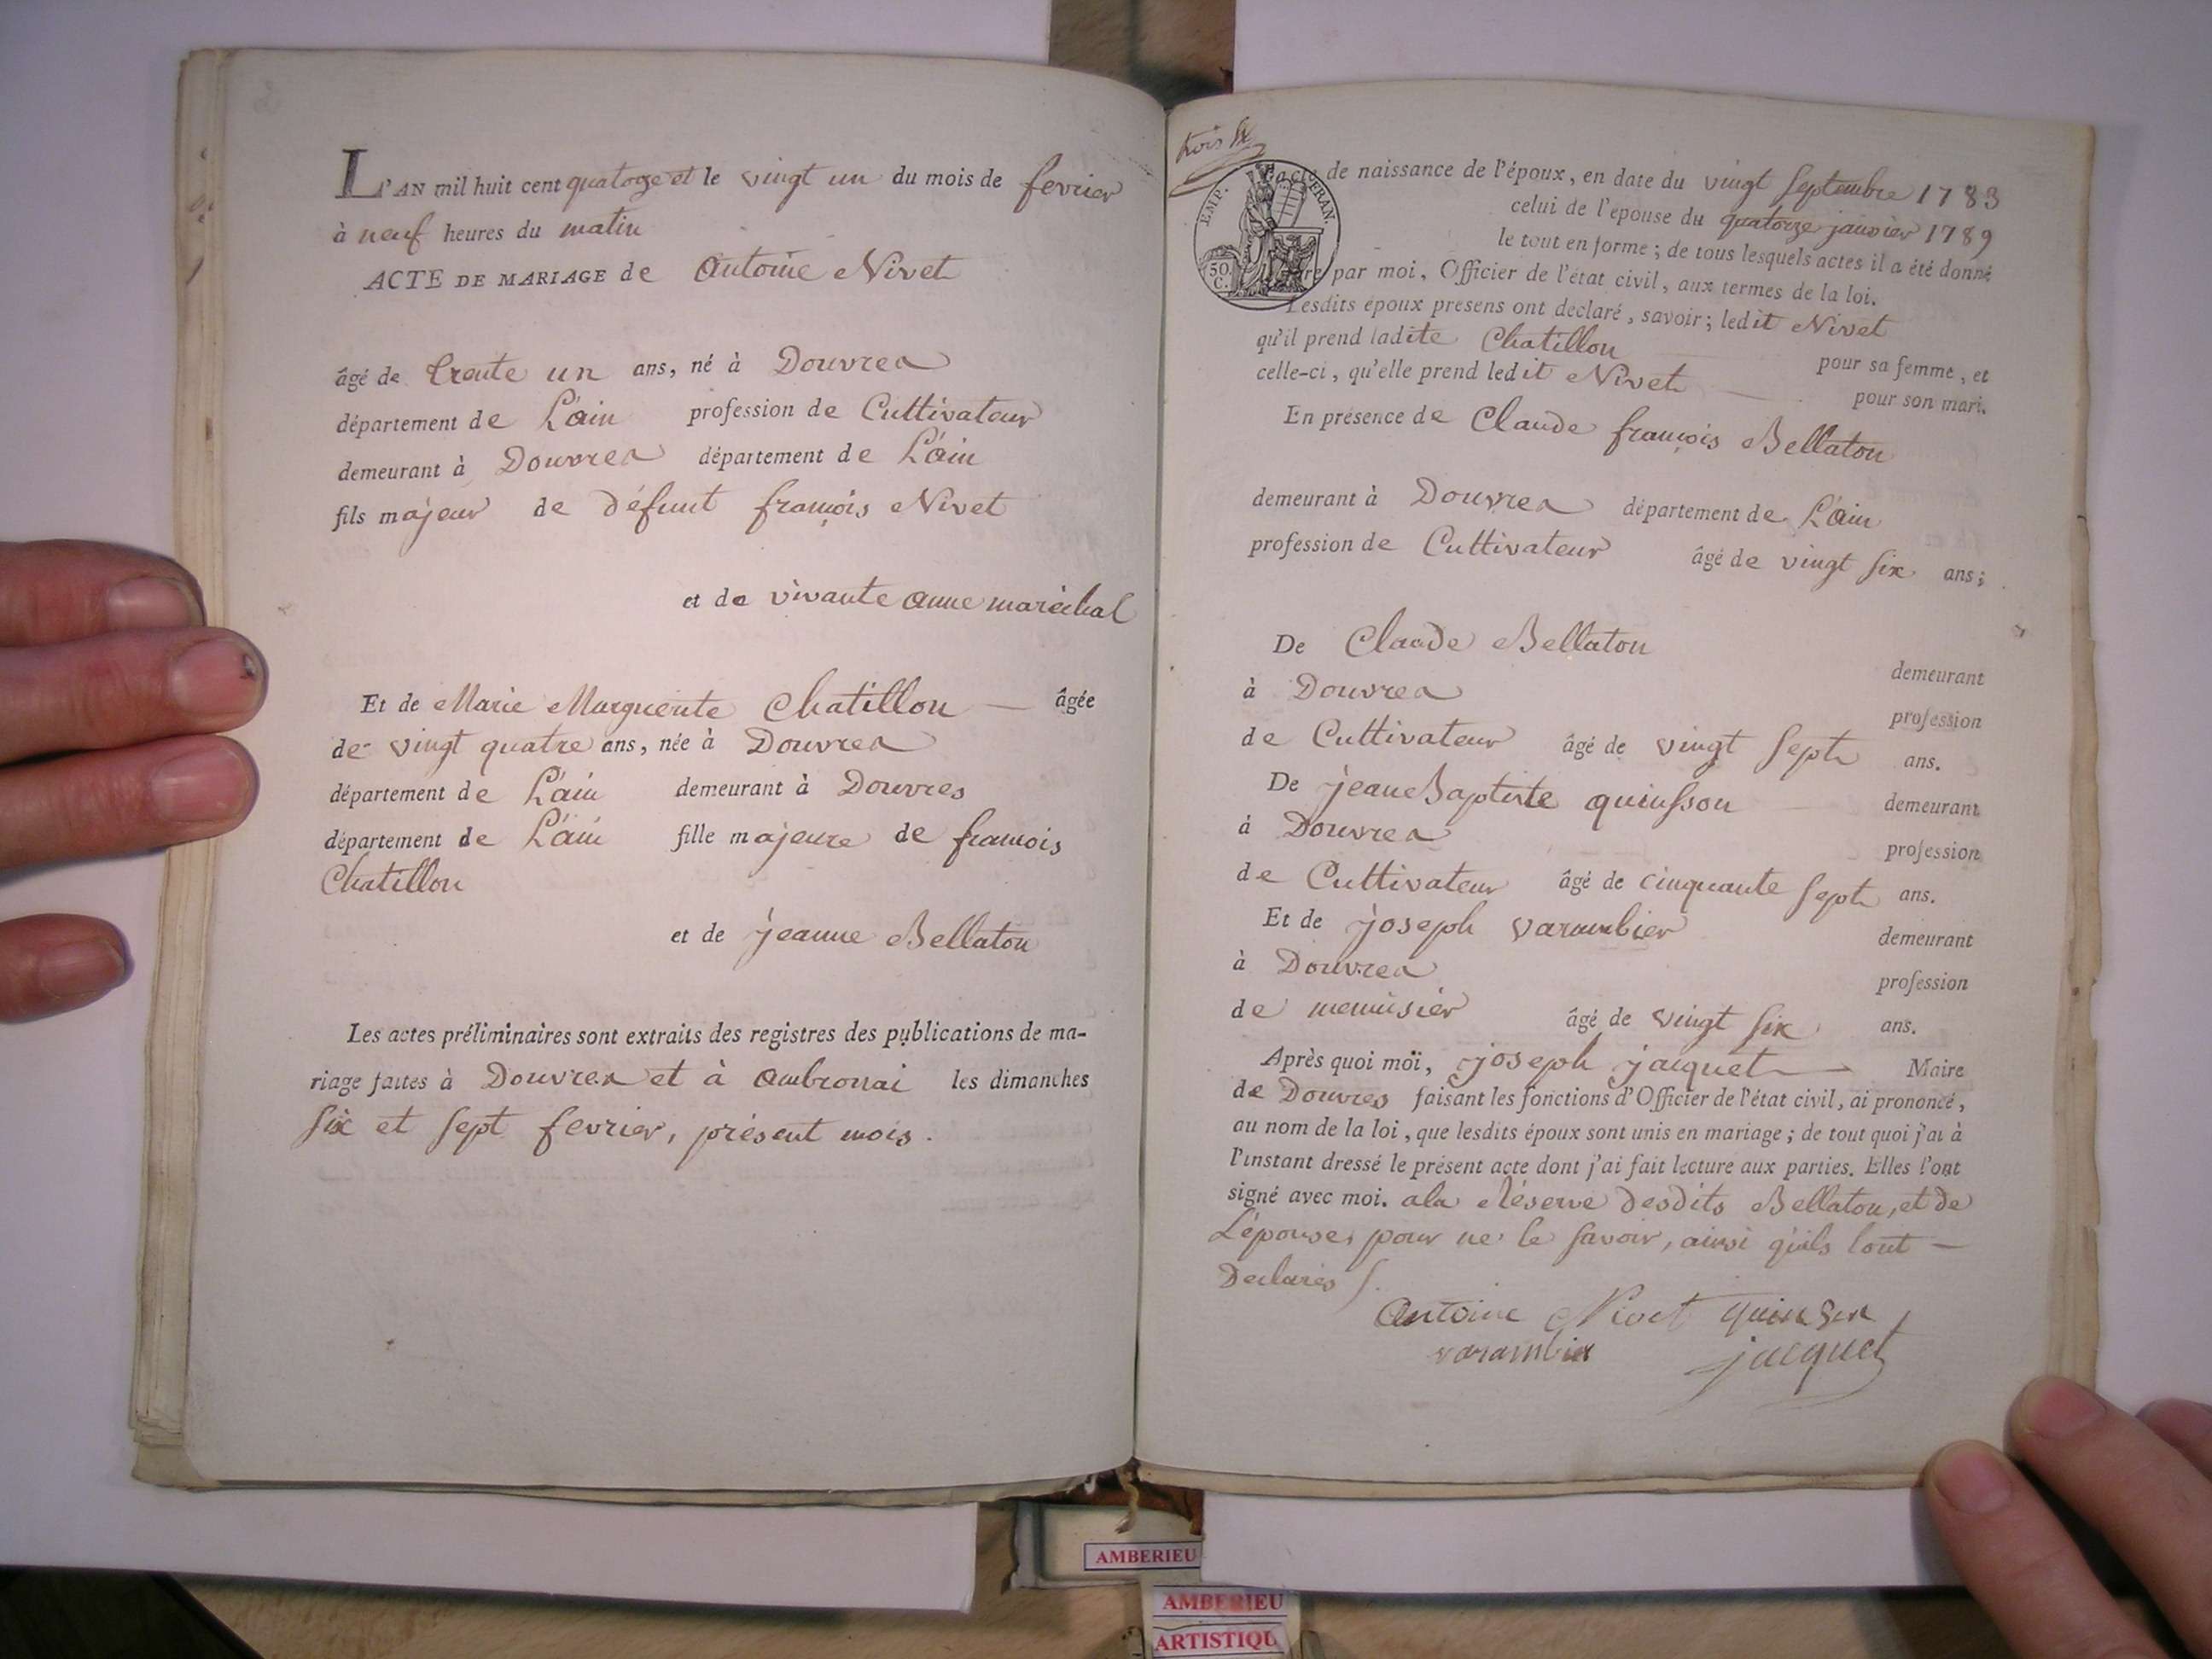 L'AN mil huit cent quatorze et le vingt un du mois de fevrier
à neuf heures du matin
ACTE DE MARIAGE de Antoine Nivet
âgé de trente un ans, né à Douvres
département de L'ain profession de Cultivateur
demeurant à Douvres département de L'ain
fils majeur de défunt françois Nivet
et de vivante anne maréchal
Et de Marie Marguerite Chatillon — âgée
de vingt quatre ans, née à Douvres
département de L'ain demeurant à Douvres
département de L'ain fille majeure de francois
Chatillon
et de jeanne Bellaton
Les actes préliminaires sont extraits des registres des publications de ma-
riage faites à Douvres et à Ambronai les dimanches
six et sept fevrier, présent mois.
trois
EMP. FRAN.
50 C.
de naissance de l'époux, en date du vingt septembre 1783
celui de l'épouse du quatorze janvier 1789
le tout en forme ; de tous lesquels actes il a été donné
par moi, Officier de l'état civil, aux termes de la loi.
Lesdits époux présens ont déclaré, savoir ; ledit Nivet
qu'il prend ladite Chatillon pour sa femme, et
celle-ci, qu'elle prend ledit Nivet — pour son mari.
En présence de Claude françois Bellaton
demeurant à Douvres département de L'ain
profession de Cultivateur âgé de vingt six ans ;
De Claude Bellaton demeurant
à Douvres profession
de Cultivateur âgé de vingt sept ans.
De jean Baptiste quinsson — demeurant
à Douvres profession
de Cultivateur âgé de cinquante sept ans.
Et de joseph varambier demeurant
à Douvres profession
de menuisier âgé de vingt six ans.
Après quoi moi, joseph jacquet — Maire
de Douvres faisant les fonctions d'Officier de l'état civil, ai prononcé,
au nom de la loi, que lesdits époux sont unis en mariage ; de tout quoi j'ai à
l'instant dressé le présent acte dont j'ai fait lecture aux parties. Elles l'ont
signé avec moi. a la Réserve desdits Bellaton, et de
L'épouse, pour ne le savoir, ainsi qu'ils l'ont —
Declarés
Antoine Nivet quinson
varambier jacquet
AMBERIEU
AMBERIEU
ARTISTIQU